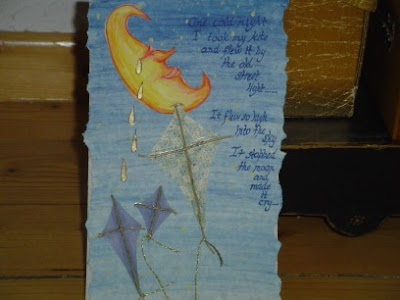 One cold night
I took my kite
and flew it by
the old
street
light....
It flew so high
Into the sky
It stabbed
the moon
and
made
it
cry....